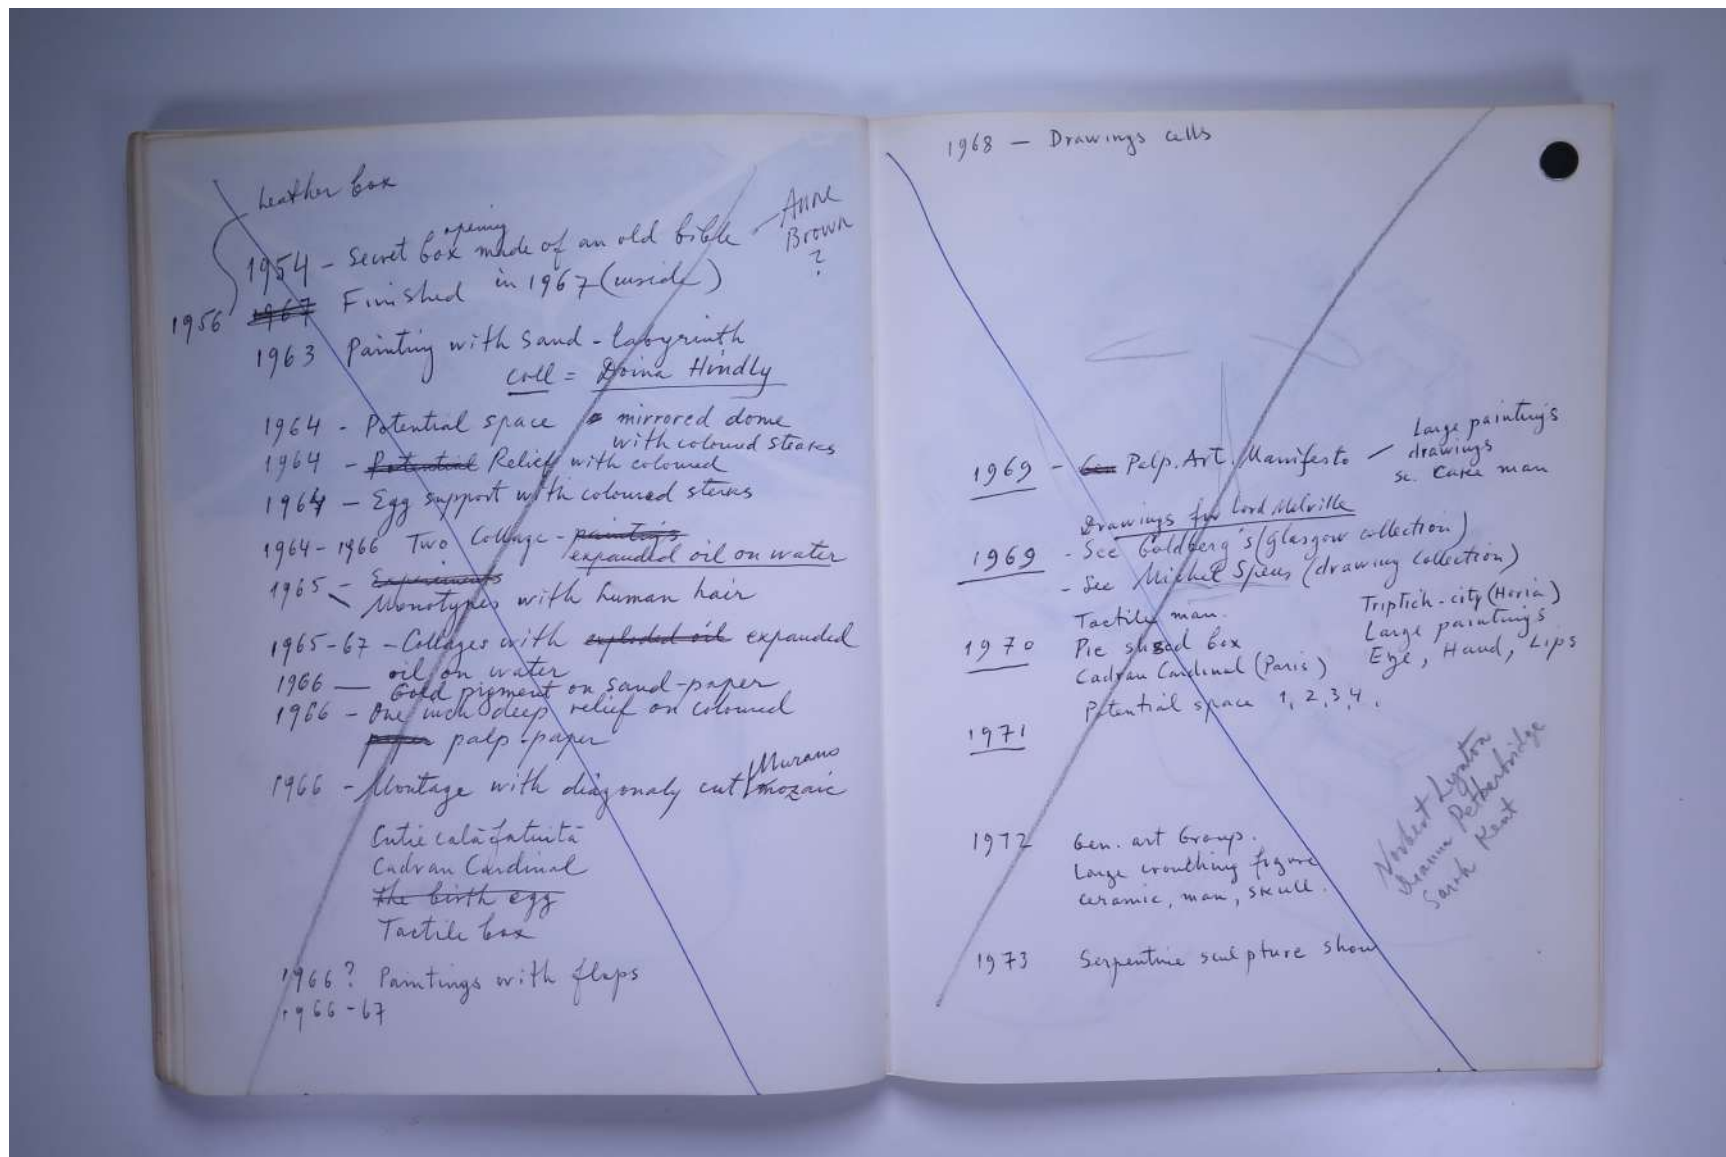 Leather box
opening
1954 - Secret box made of an old bible - Anne Brown ?
1956 1967 Finished in 1967 (inside)
1963 Painting with sand - labyrinth
coll = Doina Hindly
1964 - Potential space mirrored dome
with coloured steaks
1964 - Potential Relief with coloured
1964 - Egg support with coloured steaks
1964-1966 Two Collage - paintings
expanded oil on water
1965 - Experiments
Monotypes with human hair
1965-67 - Collages with exploded oil expanded
oil on water
1966 — Gold pigment on sand-paper
1966 - One inch deep relief on coloured
paper palp-paper
1966 - Montage with diagonaly cut Murano
mozaic
Cutie calăfătuită
Cadran Cardinal
the birth egg
Tactile box
1966? Paintings with flaps
1966-67
1968 — Drawings cells
1969 - Gen Palp. Art. Manifesto - Large paintings
drawings
sc. cake man
Drawings for Lord Melville
1969 - See Goldberg's (Glasgow collection)
- See Michel (drawing collection)
Tactile man.
1970 Pie sliced box
Cadran Cardinal (Paris)
Triptich-city (Horia)
Large paintings
Eye, Hand, Lips
Potential space 1, 2, 3, 4.
1971
Norbert Lynton
Deanna Petherbridge
Sarah Kent
1972 Gen. art Group.
Large crouching figure
ceramic, man, skull.
1973 Serpentine sculpture show